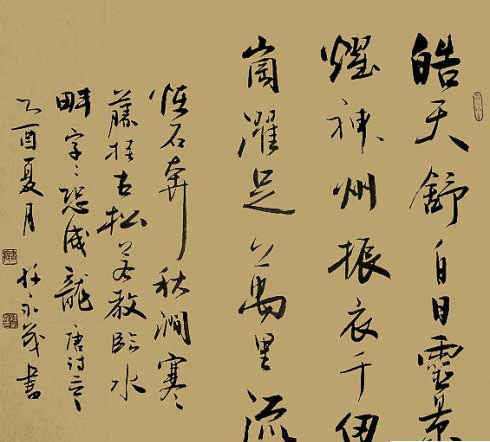 皓天舒白日靈景
燿神州振衣千仞
崗濯足萬里流
怪石奔秋澗寒
藤挂古松若教臨水
畔字〻恐成龍 唐诗
乙酉夏月 永 書